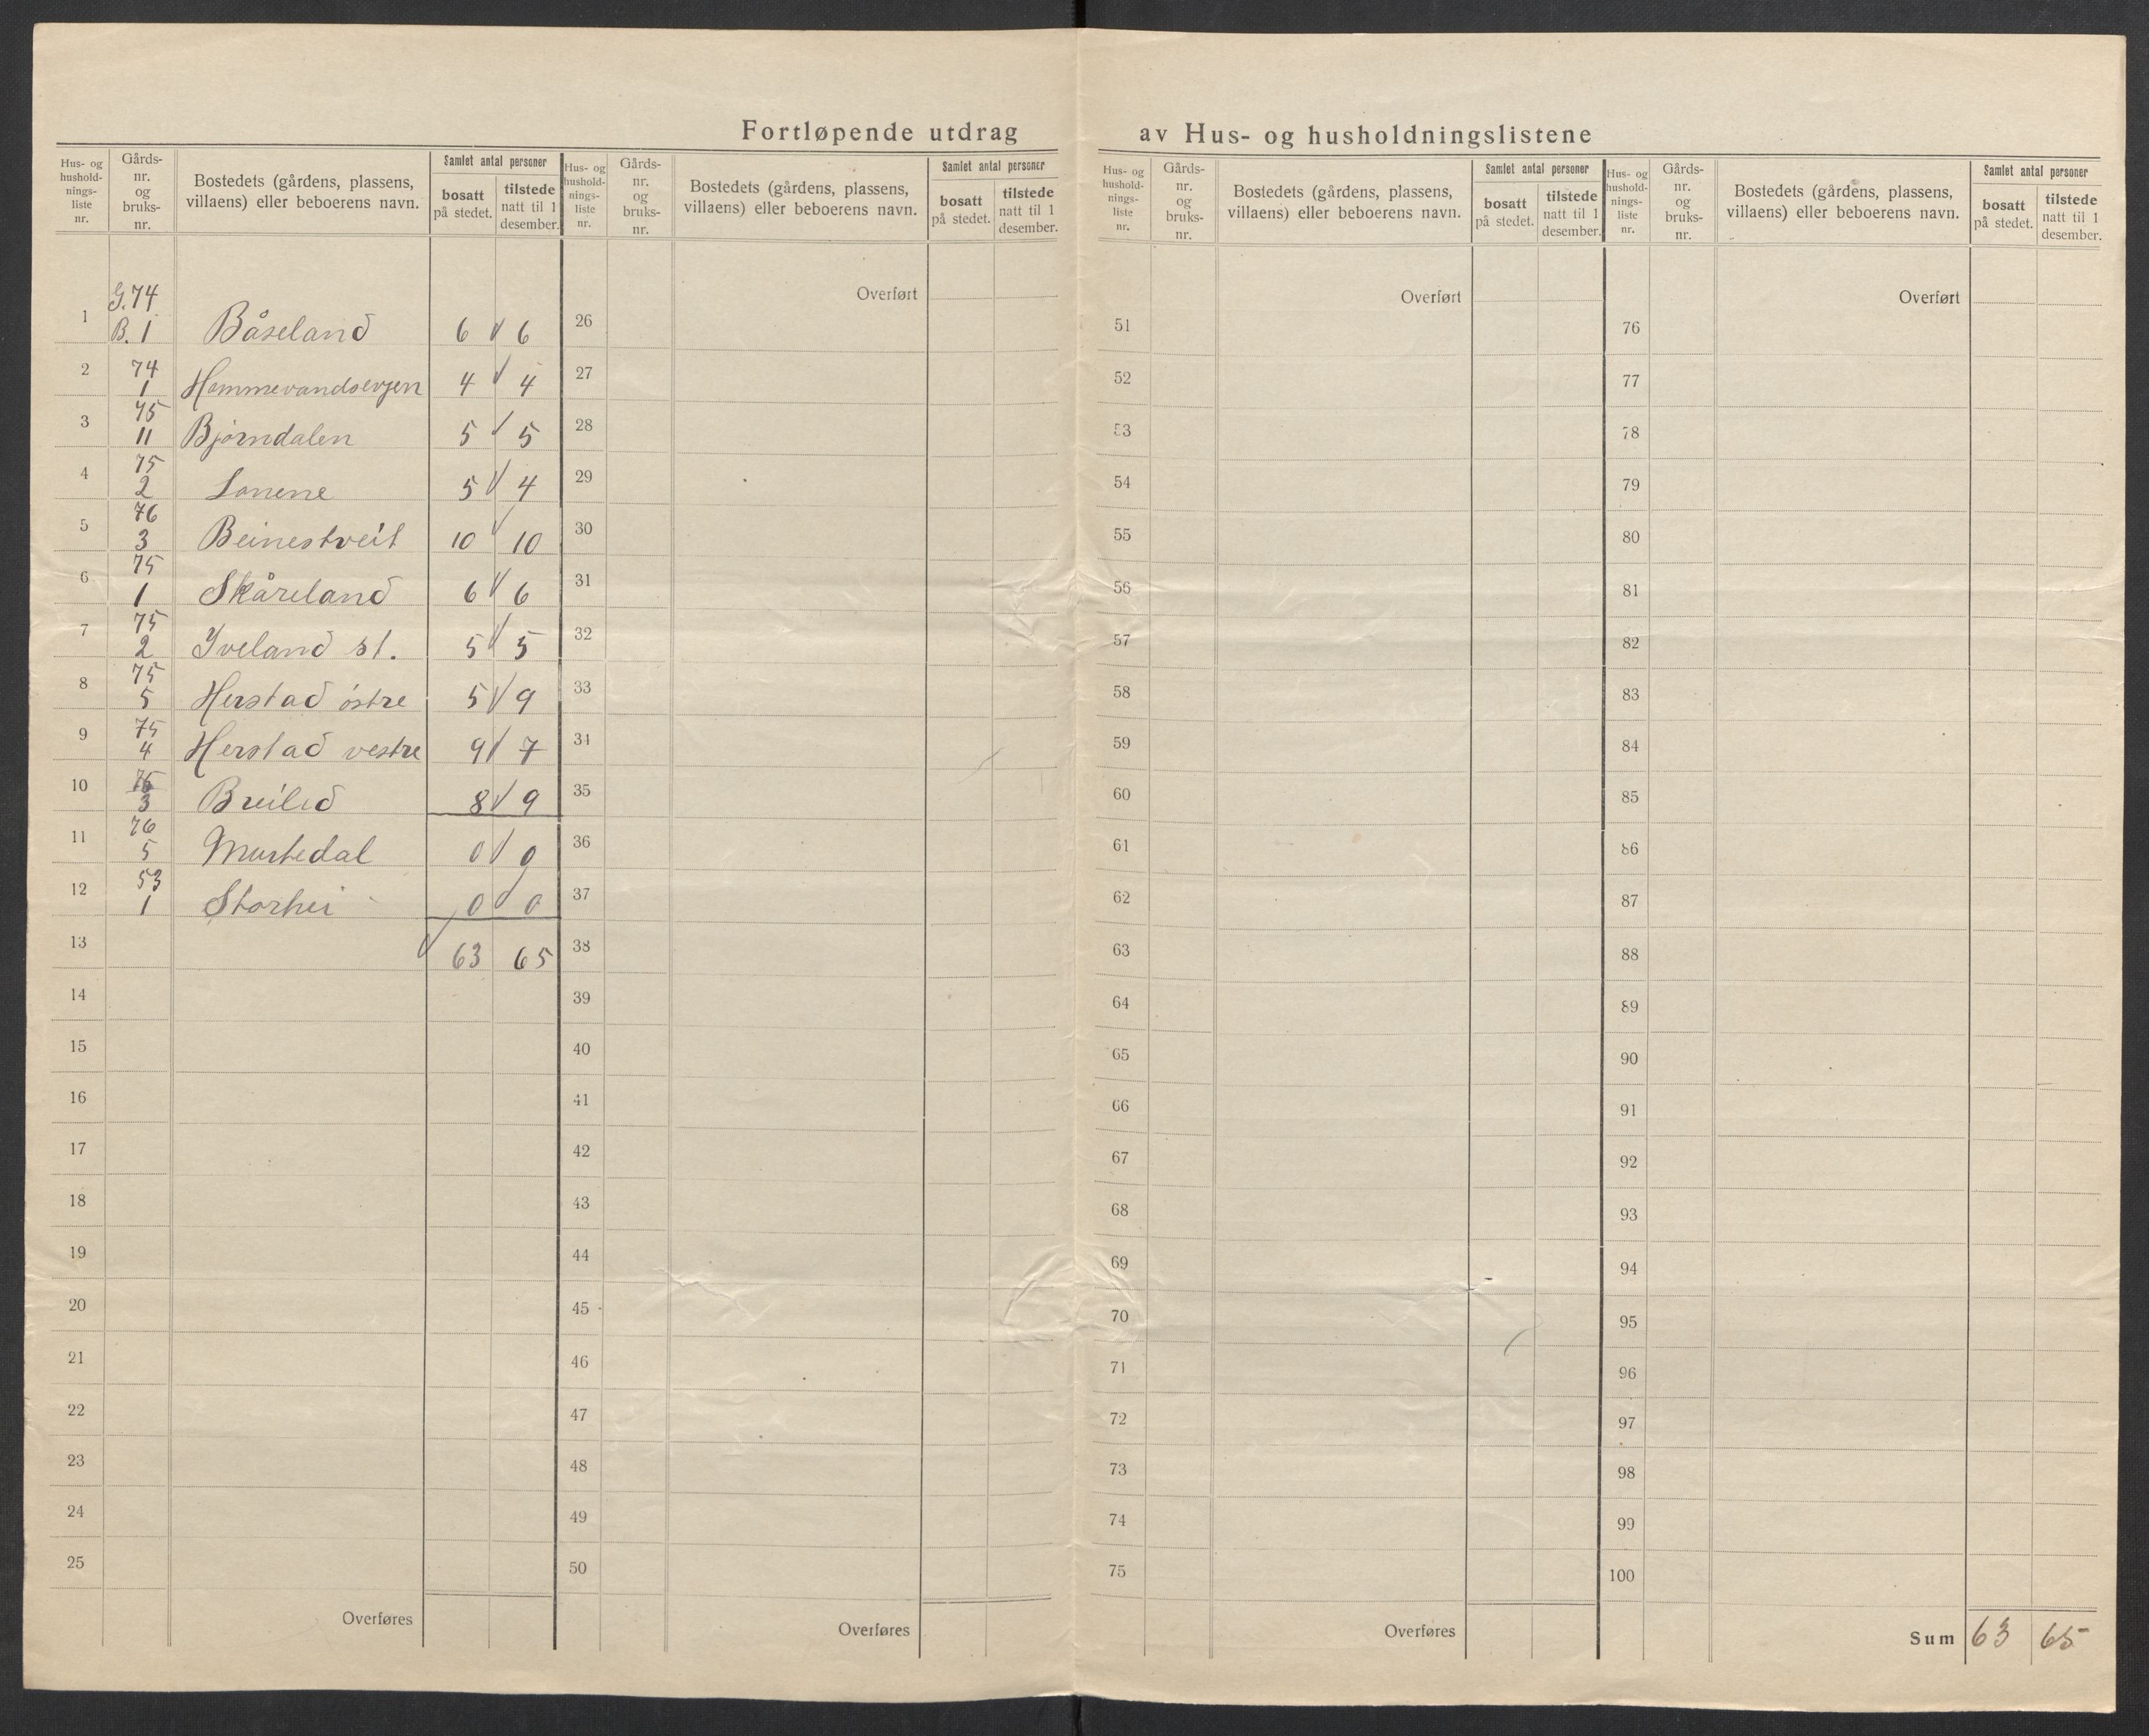 Fortløpende utdrag av Hus- og husholdningslistene
Hus- og hushold-nings-liste nr. | Gårds-nr. og bruks-nr. | Bostedets (gårdens, plassens, villaens) eller beboerens navn. | Samlet antal personer | bosatt på stedet. | tilstede natt til 1 desember.
Hus- og hushold-nings-liste nr. | Gårds-nr. og bruks-nr. | Bostedets (gårdens, plassens, villaens) eller beboerens navn. | Samlet antal personer | bosatt på stedet. | tilstede natt til 1 desember.
Hus- og hushold-nings-liste nr. | Gårds-nr. og bruks-nr. | Bostedets (gårdens, plassens, villaens) eller beboerens navn. | Samlet antal personer | bosatt på stedet. | tilstede natt til 1 desember.
Hus- og hushold-nings-liste nr. | Gårds-nr. og bruks-nr. | Bostedets (gårdens, plassens, villaens) eller beboerens navn. | Samlet antal personer | bosatt på stedet. | tilstede natt til 1 desember.
1 G. 74 B. 1 Båseland 6 6
2 74 1 Hommevandseygen 4 4
3 75 11 Bjørndalen 5 5
4 75 2 Lonene 5 4
5 76 3 Beinestveit 10 10
6 75 1 Skåreland 6 6
7 75 2 Iveland st. 5 5
8 75 5 Herstad østre 5 9
9 75 4 Herstad vestre 9 7
10 3 Breilid 8 9
11 76 5 0 0
12 53 1 Storhei 0 0
13 63 65
14
15
16
17
18
19
20
21
22
23
24
25
Overføres
Overført
26
27
28
29
30
31
32
33
34
35
36
37
38
39
40
41
42
43
44
45
46
47
48
49
50
Overføres
Overført
51
52
53
54
55
56
57
58
59
60
61
62
63
64
65
66
67
68
69
70
71
72
73
74
75
Overføres
Overført
76
77
78
79
80
81
82
83
84
85
86
87
88
89
90
91
92
93
94
95
96
97
98
99
100
Sum 63 65